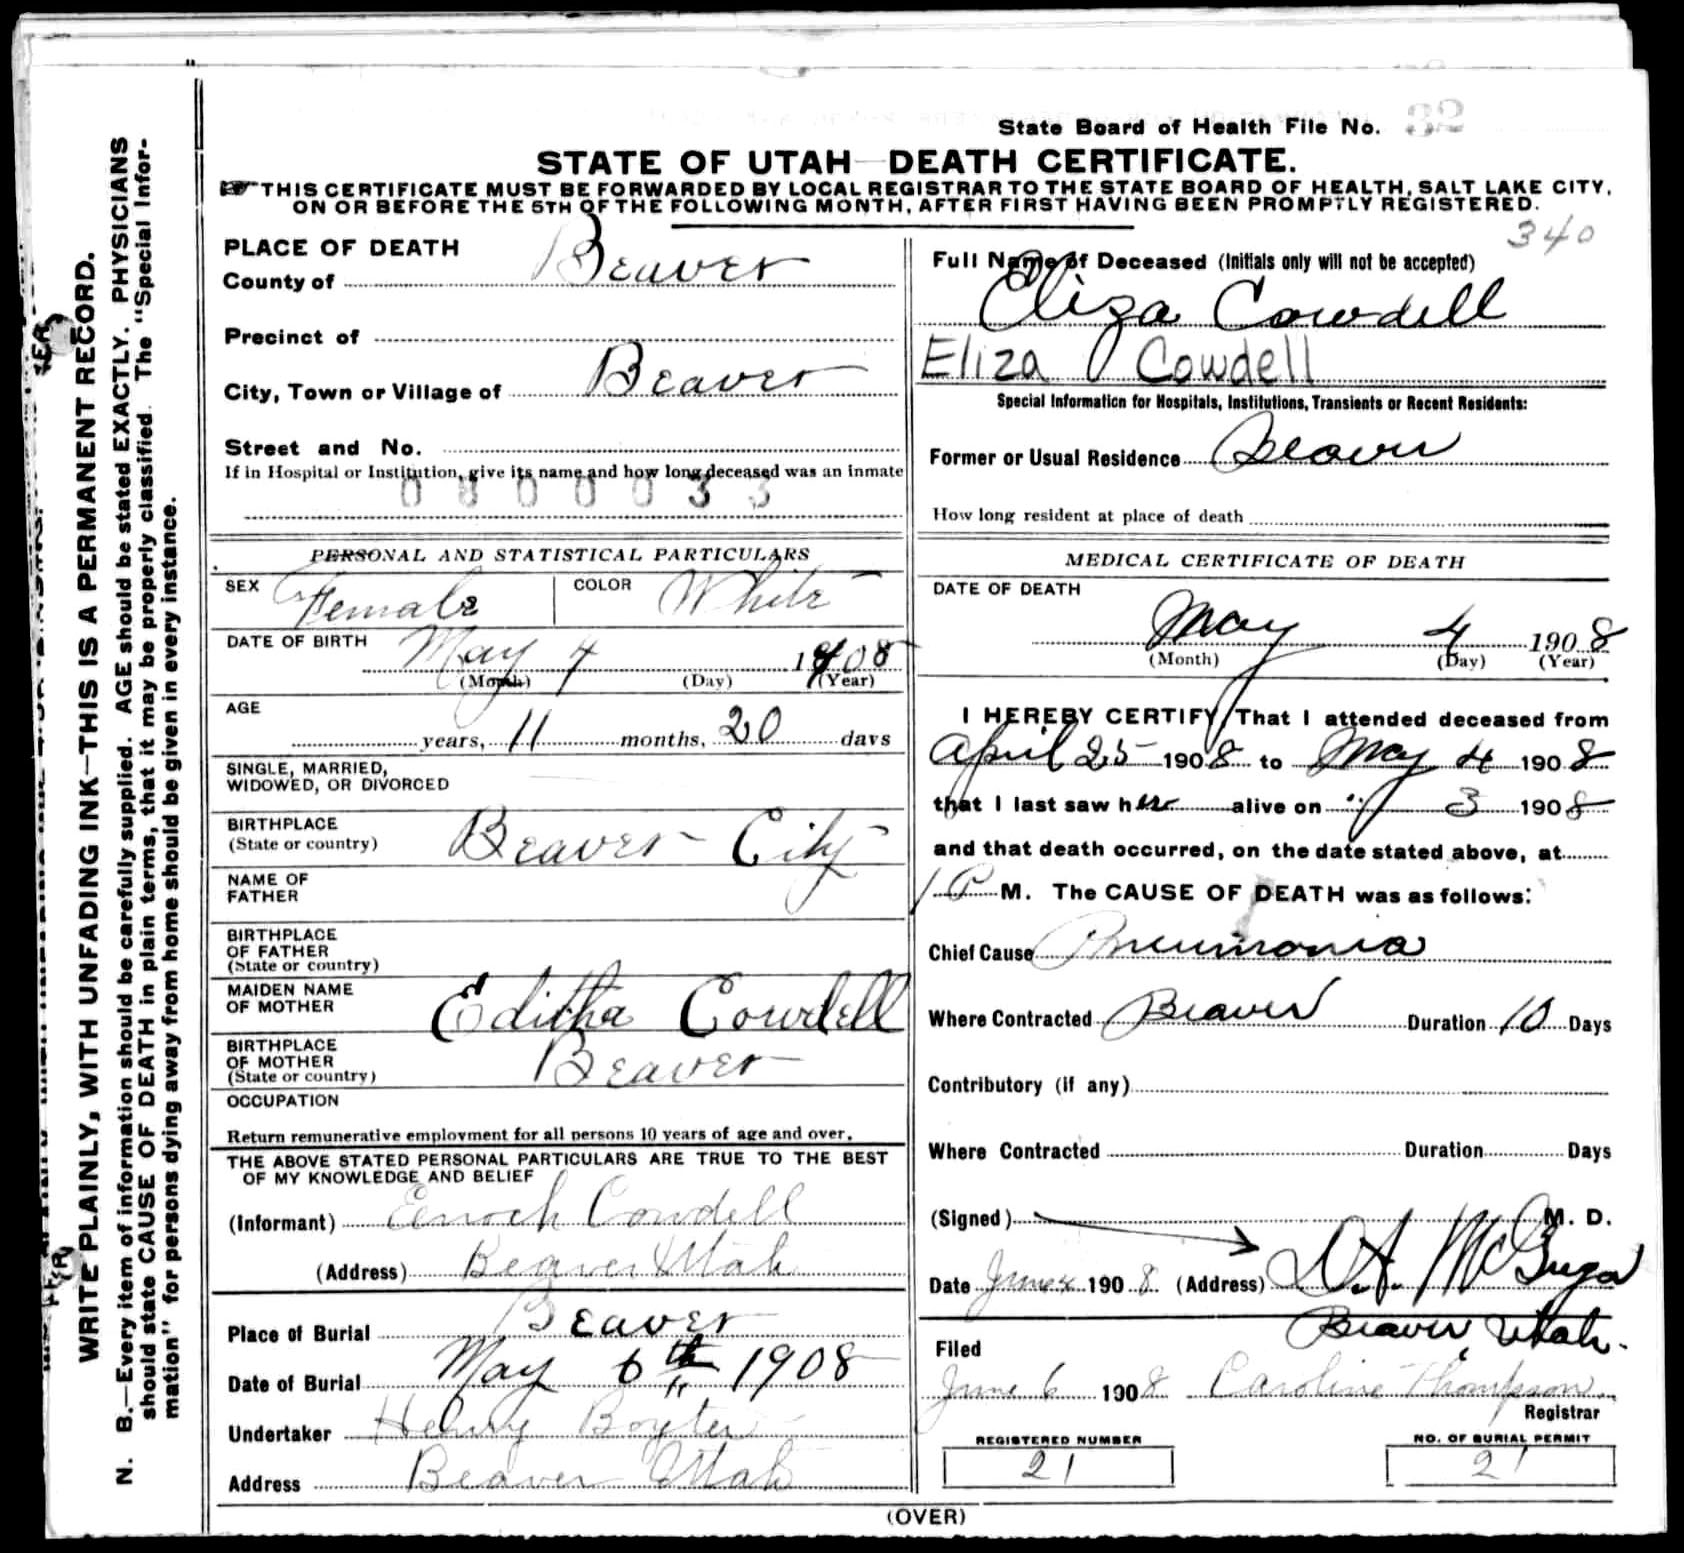 State Board of Health File No. 32
STATE OF UTAH—DEATH CERTIFICATE.
THIS CERTIFICATE MUST BE FORWARDED BY LOCAL REGISTRAR TO THE STATE BOARD OF HEALTH, SALT LAKE CITY,
ON OR BEFORE THE 5TH OF THE FOLLOWING MONTH, AFTER FIRST HAVING BEEN PROMPTLY REGISTERED.
340
WRITE PLAINLY, WITH UNFADING INK—THIS IS A PERMANENT RECORD.
N. B.—Every item of information should be carefully supplied. AGE should be stated EXACTLY. PHYSICIANS
should state CAUSE OF DEATH in plain terms, that it may be properly classified. The "Special Infor-
mation" for persons dying away from home should be given in every instance.
PLACE OF DEATH
County of Beaver
Precinct of
City, Town or Village of Beaver
Street and No.
If in Hospital or Institution, give its name and how long deceased was an inmate
0800033
PERSONAL AND STATISTICAL PARTICULARS
SEX Female COLOR White
DATE OF BIRTH May 4 1908
(Month) (Day) (Year)
AGE
years, 11 months, 20 days
SINGLE, MARRIED,
WIDOWED, OR DIVORCED
BIRTHPLACE
(State or country) Beaver City
NAME OF
FATHER
BIRTHPLACE
OF FATHER
(State or country)
MAIDEN NAME
OF MOTHER Editha Cowdell
BIRTHPLACE
OF MOTHER
(State or country) Beaver
OCCUPATION
Return remunerative employment for all persons 10 years of age and over.
THE ABOVE STATED PERSONAL PARTICULARS ARE TRUE TO THE BEST
OF MY KNOWLEDGE AND BELIEF
(Informant) Enoch Cowdell
(Address) Beaver Utah
Place of Burial Beaver
Date of Burial May 6th 1908
Undertaker Henry Boyter
Address Beaver Utah
Full Name of Deceased (Initials only will not be accepted)
Eliza Cowdell
Eliza Cowdell
Special Information for Hospitals, Institutions, Transients or Recent Residents:
Former or Usual Residence Beaver
How long resident at place of death
MEDICAL CERTIFICATE OF DEATH
DATE OF DEATH
May 4 1908
(Month) (Day) (Year)
I HEREBY CERTIFY, That I attended deceased from
April 25 1908 to May 4 1908
that I last saw her alive on " 3 1908
and that death occurred, on the date stated above, at
1 P M. The CAUSE OF DEATH was as follows:
Chief Cause Pneumonia
Where Contracted Beaver Duration 10 Days
Contributory (if any)
Where Contracted Duration Days
(Signed) M. D.
Date June 4 1908 (Address) McGregor
Beaver, Utah.
Filed
June 6 1908 Caroline Thompson
Registrar
REGISTERED NUMBER
21
NO. OF BURIAL PERMIT
21
(OVER)